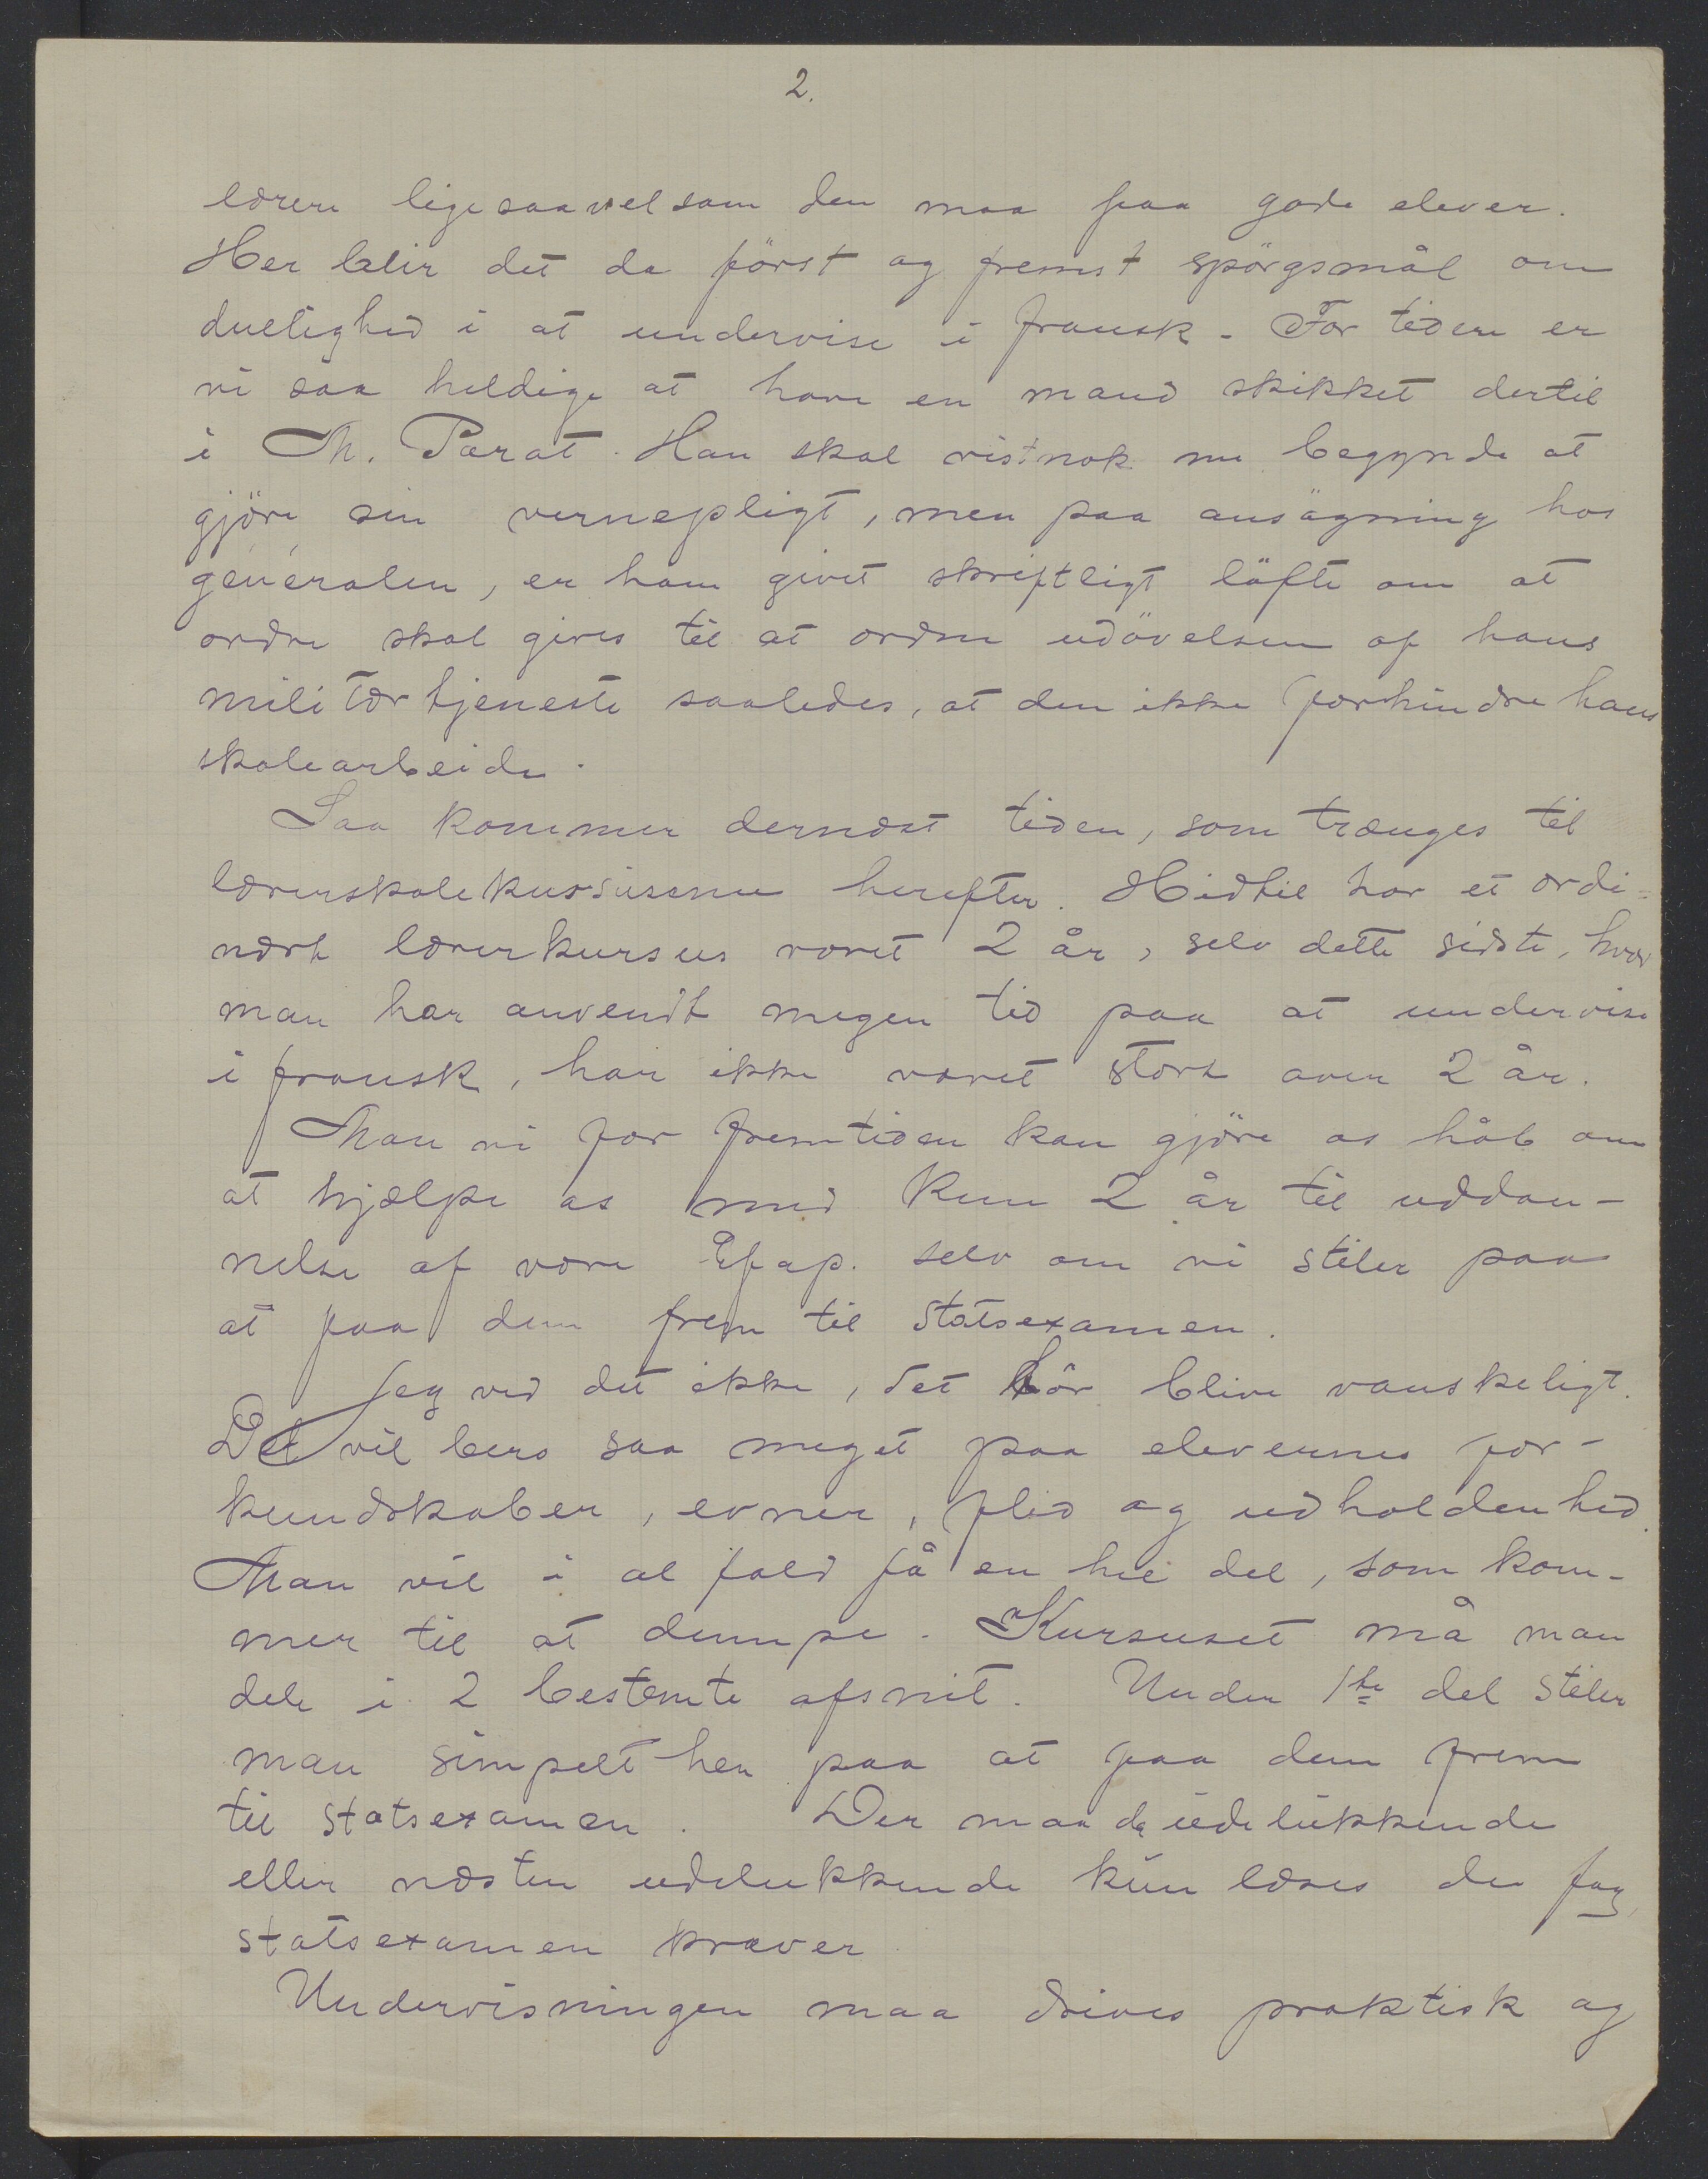 2.
lærere ligesaavel som den maa faa gode elever.
Her blir det da först og fremst spörgsmål om
duelighed i at undervise i fransk. For tiden er
vi saa heldige at have en mand skikket dertil
i M. Parat. Han skal vistnok nu begynde at
gjöre sin vernepligt, men paa ansögning hos
generalen, er ham givet skriftligt löfte om at
ordre skal gives til at ordne udövelsen af hans
militær tjeneste saaledes, at den ikke forhindre hans
skolearbeide.
Saa kommer dernæst tiden, som trænges til
lærerskolekursusene herefter. Hidtil har et ordi-
nært lærerkursus været 2 år, selv dette sidste, hvor
man har anvendt megen tid paa at undervise
i fransk, har ikke været stort over 2 år.
Mon vi for fremtiden kan gjöre os håb om
at hjælpe os med kun 2 år til uddan-
nelse af vore Efap. selv om vi stiler paa
at faa dem frem til statsexamen.
Jeg ved det ikke, det bör blive vanskeligt.
Det vil bero saa meget paa elevernes for-
kundskaber, evner, flid og udholdenhed.
Man vil i al fald få en hel del, som kom-
mer til at dumpe. Kursuset må man
dele i 2 bestemte afsnit. Under 1ste del stiler
man simpelthen paa at faa dem frem
til statsexamen. Der maa da udelukkende
eller næsten udelukkende kun læses de fag,
statsexamen kræver
Undervisningen maa drives praktisk og